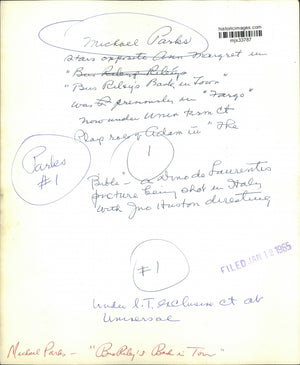 historicimages.com
mjx33787
Michael Parks
stars opposite Ann Margret in
"Bus Riley's
"Bus Rileys Back in Town"
was previously in "Fargo"
now under Univ term ct
Plays role of Adam in "The
1
Parks
#1
Bible" - a Dino de Laurentis
picture being shot in Italy
with Jno Huston directing
#1
FILED JAN 12 1965
Under l.T. exclusive ct at
Universal
Michael Parks - "Bus Riley's Back in Town"